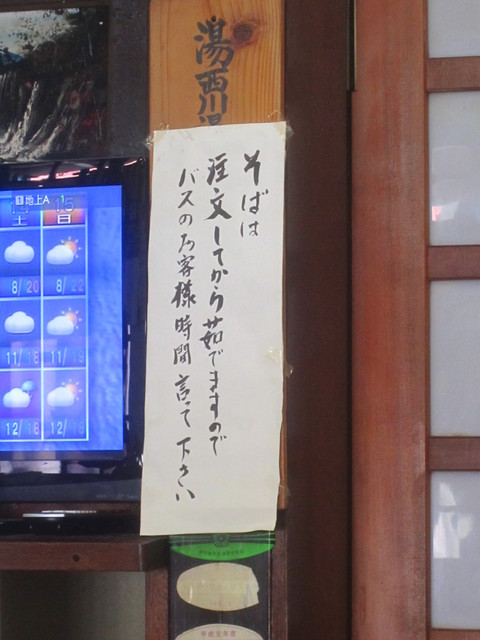 湯西川温
そばは
注文してから茹でますので
バスのお客様時間言って下さい
地上A
土
日
8/20
8/22
11/18
12/18
平成元年度